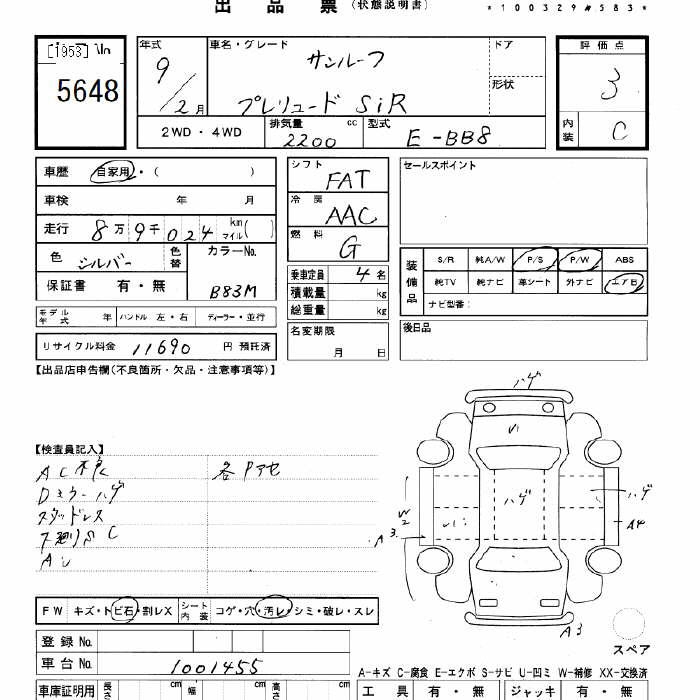 出品票 (状態説明書) *100329#583*
[1953]
5648
年式 9/2月
車名・グレード サンルーフ プレリュード SiR
ドア
形状
2WD・4WD
排気量 2200 cc
型式 E-BB8
評価点 3
内装 C
車歴 自家用・( )
車検 年 月
走行 8万9千024 km マイル( )
色 シルバー 色替 カラーNo. B83M
保証書 有・無
シフト FAT
冷房 AAC
燃料 G
乗車定員 4名
積載量 kg
総重量 kg
名変期限 月 日
セールスポイント
装備品 S/R 純A/W P/S P/W ABS
純TV 純ナビ 革シート 外ナビ エアB
ナビ型番:
後日品
モデル年式 年 ハンドル 左・右 ディーラー・並行
リサイクル料金 11690 円 預託済
【出品店申告欄(不良箇所・欠品・注意事項等)】
【検査員記入】
AC不良 各Pアセ
Dミラーハゲ
スタッドレス
下廻りS C
ハゲ
ハゲ
ハゲ
W2
A3
A4
A3
スペア
FW キズ・トビ石・割レX シート内装 コゲ・穴・汚レ・シミ・破レ・スレ
登録No.
車台No. 1001455
A-キズ C-腐食 E-エクボ S-サビ U-凹ミ W-補修 XX-交換済
車庫証明用 長さ cm 幅 cm 高さ cm
工具 有・無 ジャッキ 有・無